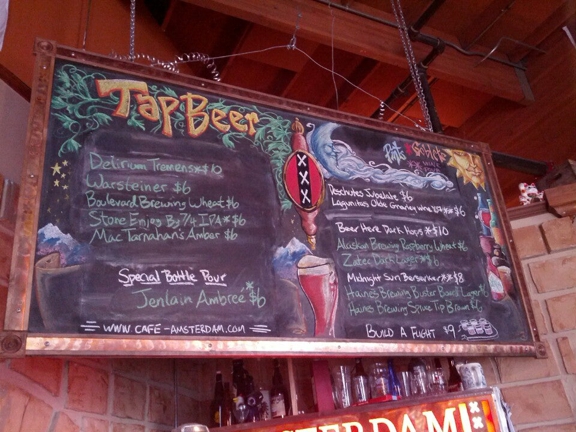 Tap Beer
Delirium Tremens * $10
Warsteiner $6
Boulevard Brewing Wheat $6
Stone Enjoy By 7/4 IPA * $6
Mac Tarnahan's Amber $6
Special Bottle Pour
Jenlain Ambree * $6
www.cafe-amsterdam.com
XXX
Pints & Goblets
Deschutes $6
Lagunitas Olde Gnarley wine * $6
Beer Here Dark Hops * $10
Alaskan Brewing Raspberry Wheat $6
Zatec Dark Lager $6
Midnight Sun Berserker * $8
Haines Brewing Buster Board Lager $6
Haines Brewing Spruce Tip
Build a Flight $9
AMSTERDAM
XXX